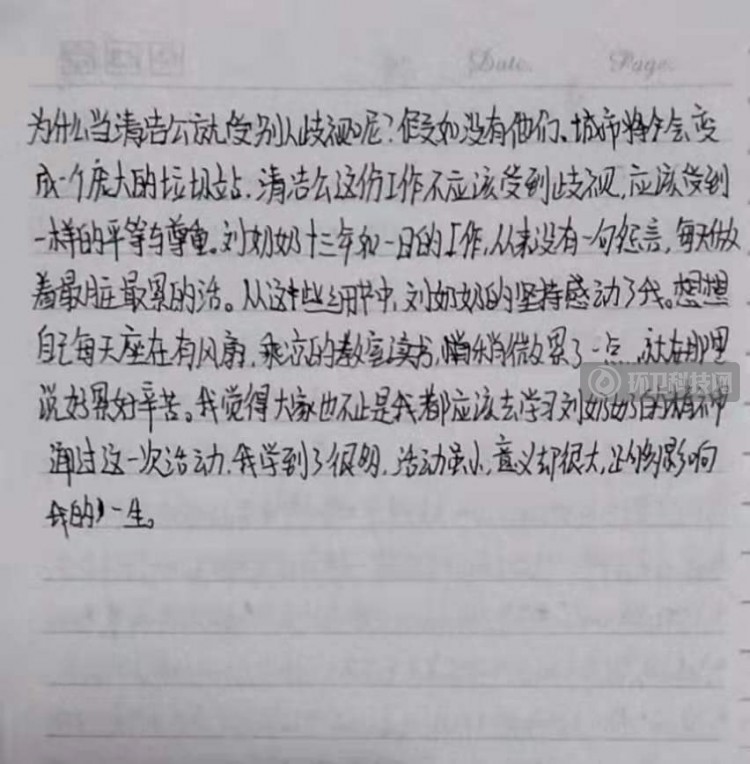 Date. Page.
为什么当清洁公就受别人歧视呢?假如没有他们、城市将会变
成一个庞大的垃圾站.清洁公这份工作不应该受到歧视,应该受到
一样的平等与尊重。刘奶奶十三年如一日的工作,从来没有一句怨言,每天做
着最脏最累的活。从这些细节中,刘奶奶的坚持感动了我。想想
自己每天座在有风扇,乘凉的教室读书,稍稍微累了一点,就在那里
说好累好辛苦。我觉得大家也不止是我都应该去学习刘奶奶的精神
通过这一次活动,我学到了很多,活动虽小,意义却很大,影响
我的一生。
环卫科技网